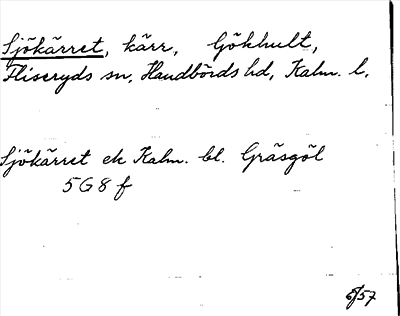 Sjökärret, kärr, Gökhult,
Fliseryds sn, Handbörds hd, Kalm. l.
Sjökärret ek Kalm. bl. Gräsgöl
5G8f
57